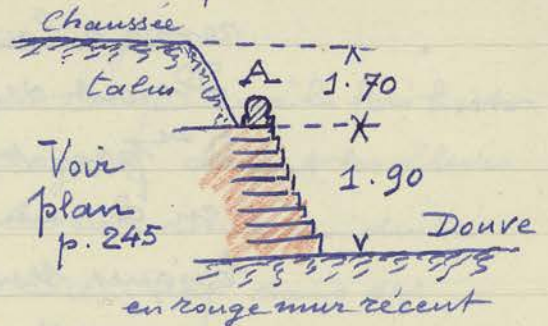 Chaussée
talus
A
1.70
1.90
Voir
plan
p. 245
Douve
en rouge mur récent